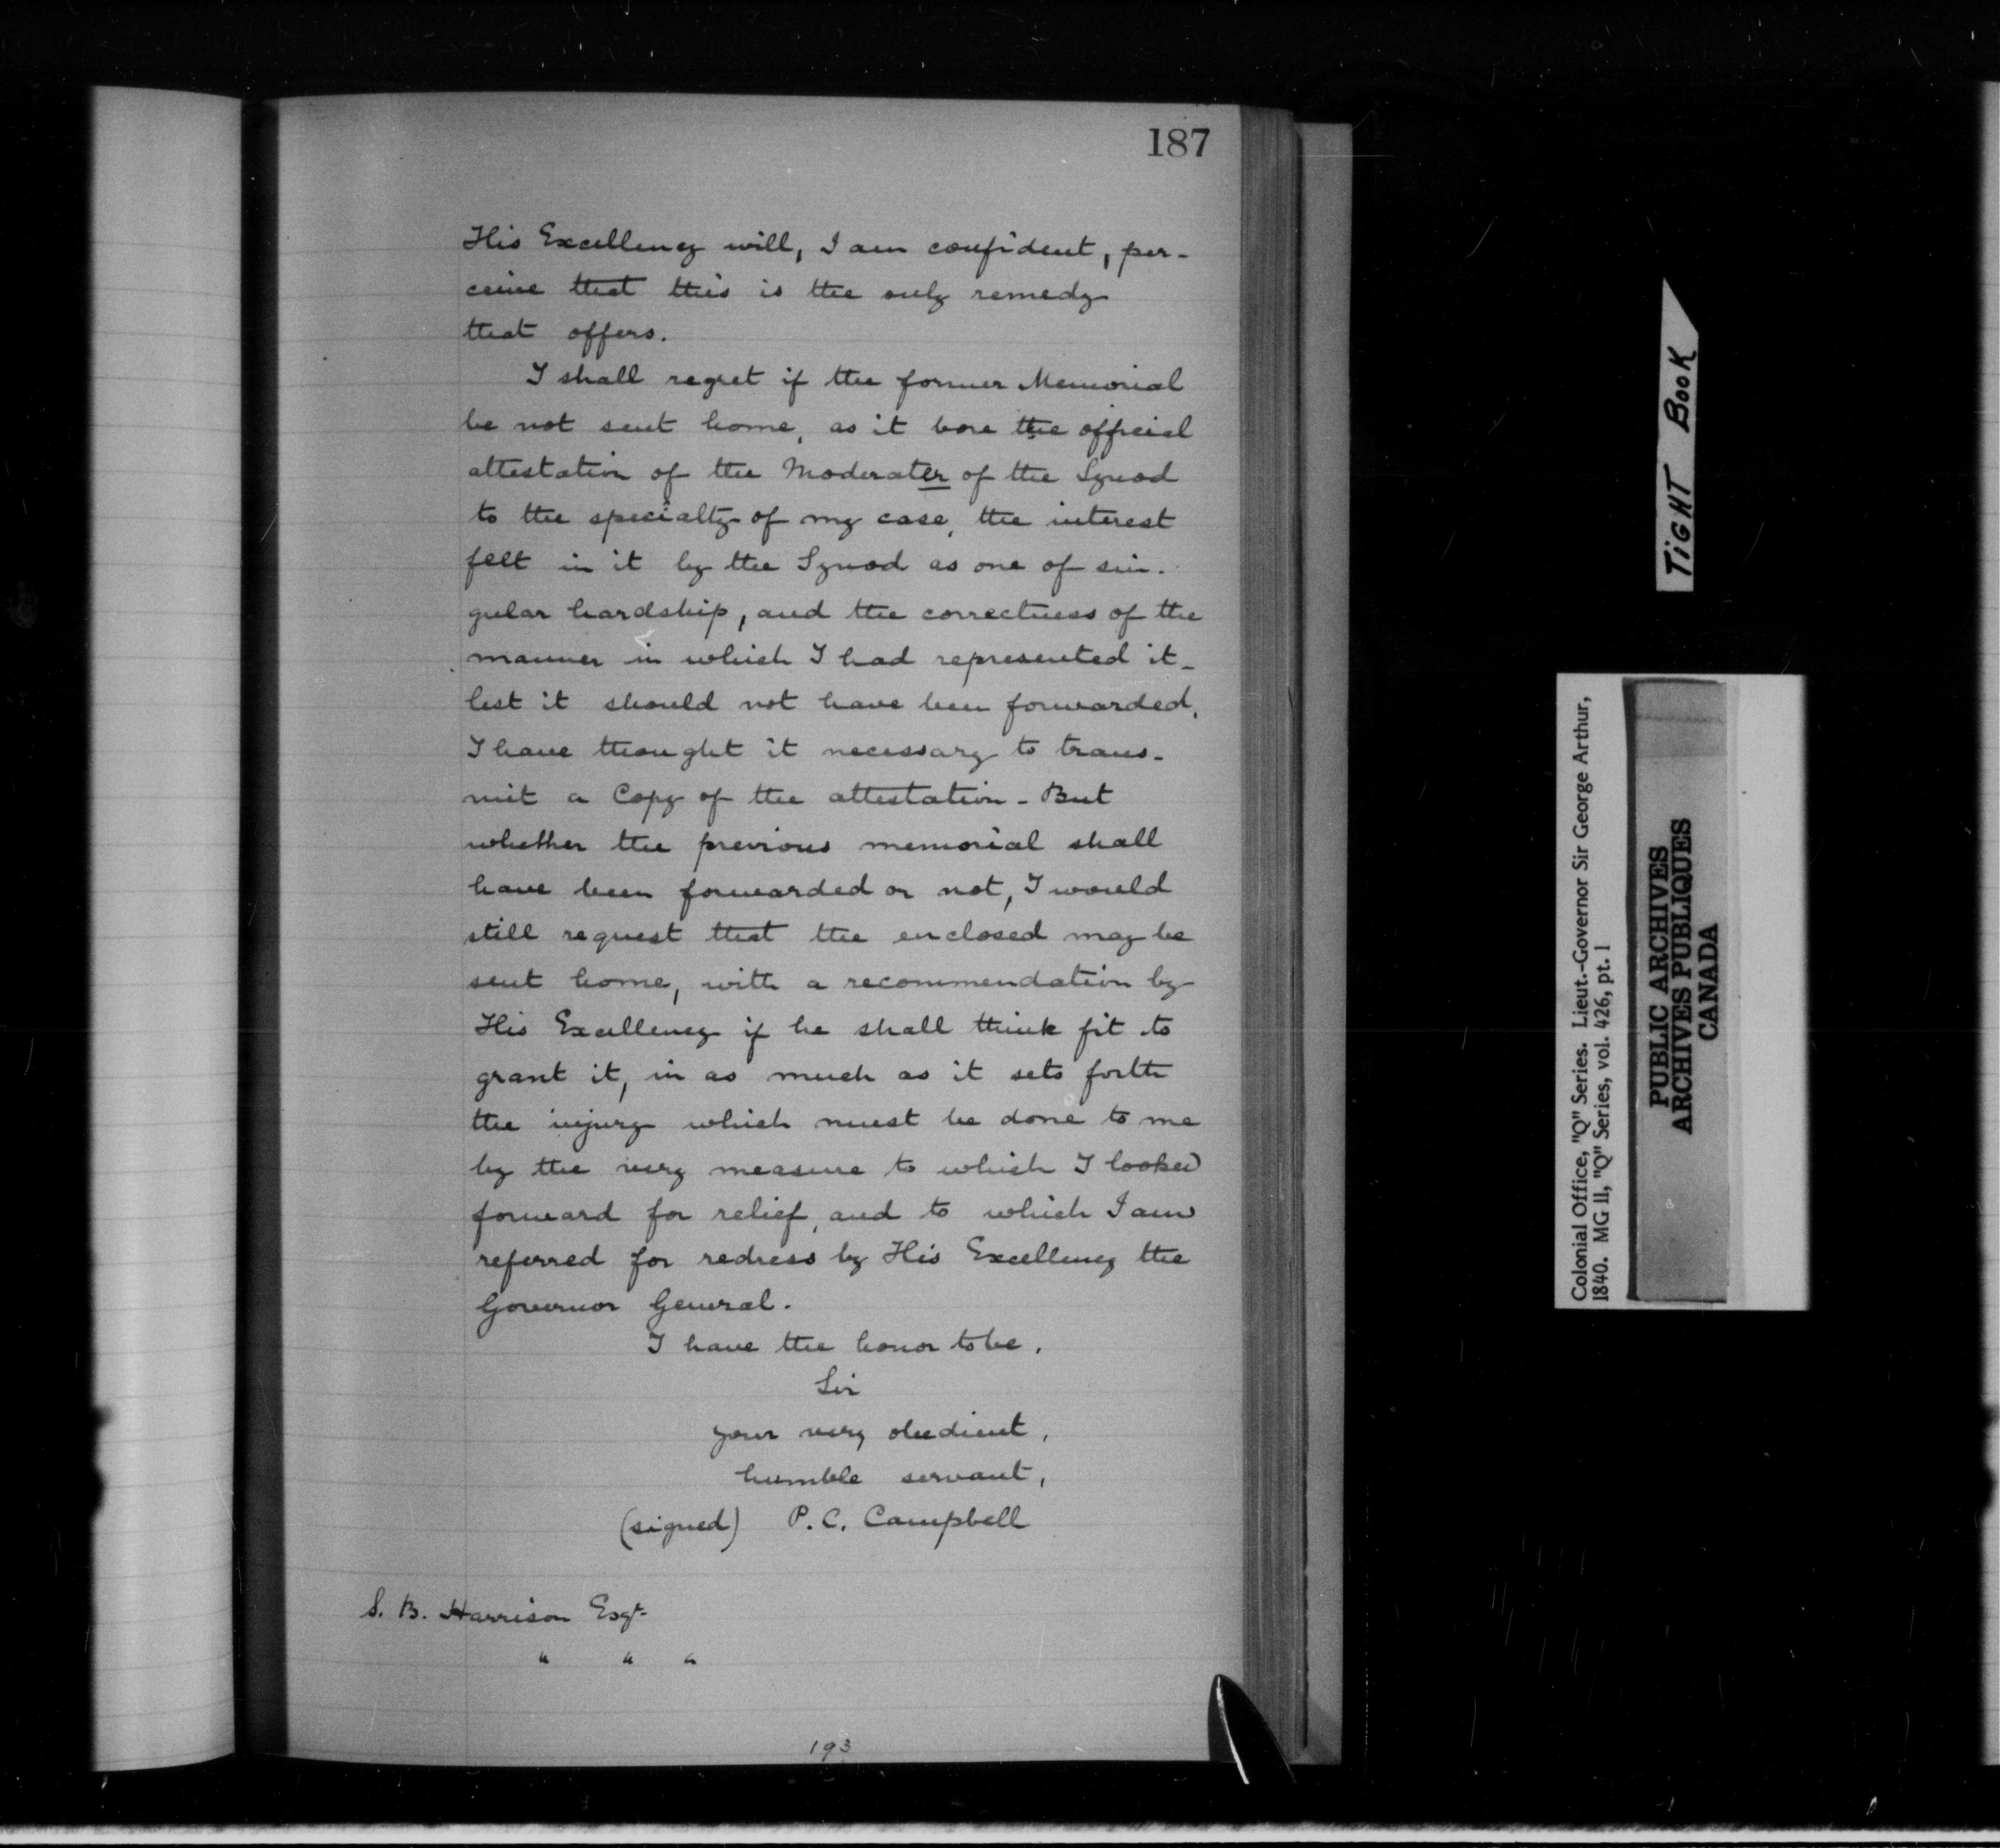 187
His Excellency will, I am confident, per-
ceive that this is the only remedy
that offers.
I shall regret if the former Memorial
be not sent home, as it bore the official
attestation of the Moderater of the Synod
to the specialty of my case, the interest
felt in it by the Synod as one of sin-
gular hardship, and the correctness of the
manner in which I had represented it -
lest it should not have been forwarded,
I have thought it necessary to trans-
mit a Copy of the attestation - But
whether the previous memorial shall
have been forwarded or not, I would
still request that the enclosed may be
sent home, with a recommendation by
His Excellency if he shall think fit to
grant it, in as much as it sets forth
the injury which must be done to me
by the very measure to which I looked
forward for relief, and to which I am
referred for redress by His Excellency the
Governor General.
I have the honor to be,
Sir
your very obedient,
humble servant,
(signed) P. C. Campbell
S. B. Harrison Esqr
" " "
193
TiGHT BooK
Colonial Office, "Q" Series. Lieut.-Governor Sir George Arthur,
1840. MG 11, "Q" Series, vol. 426, pt. 1
PUBLIC ARCHIVES
ARCHIVES PUBLIQUES
CANADA